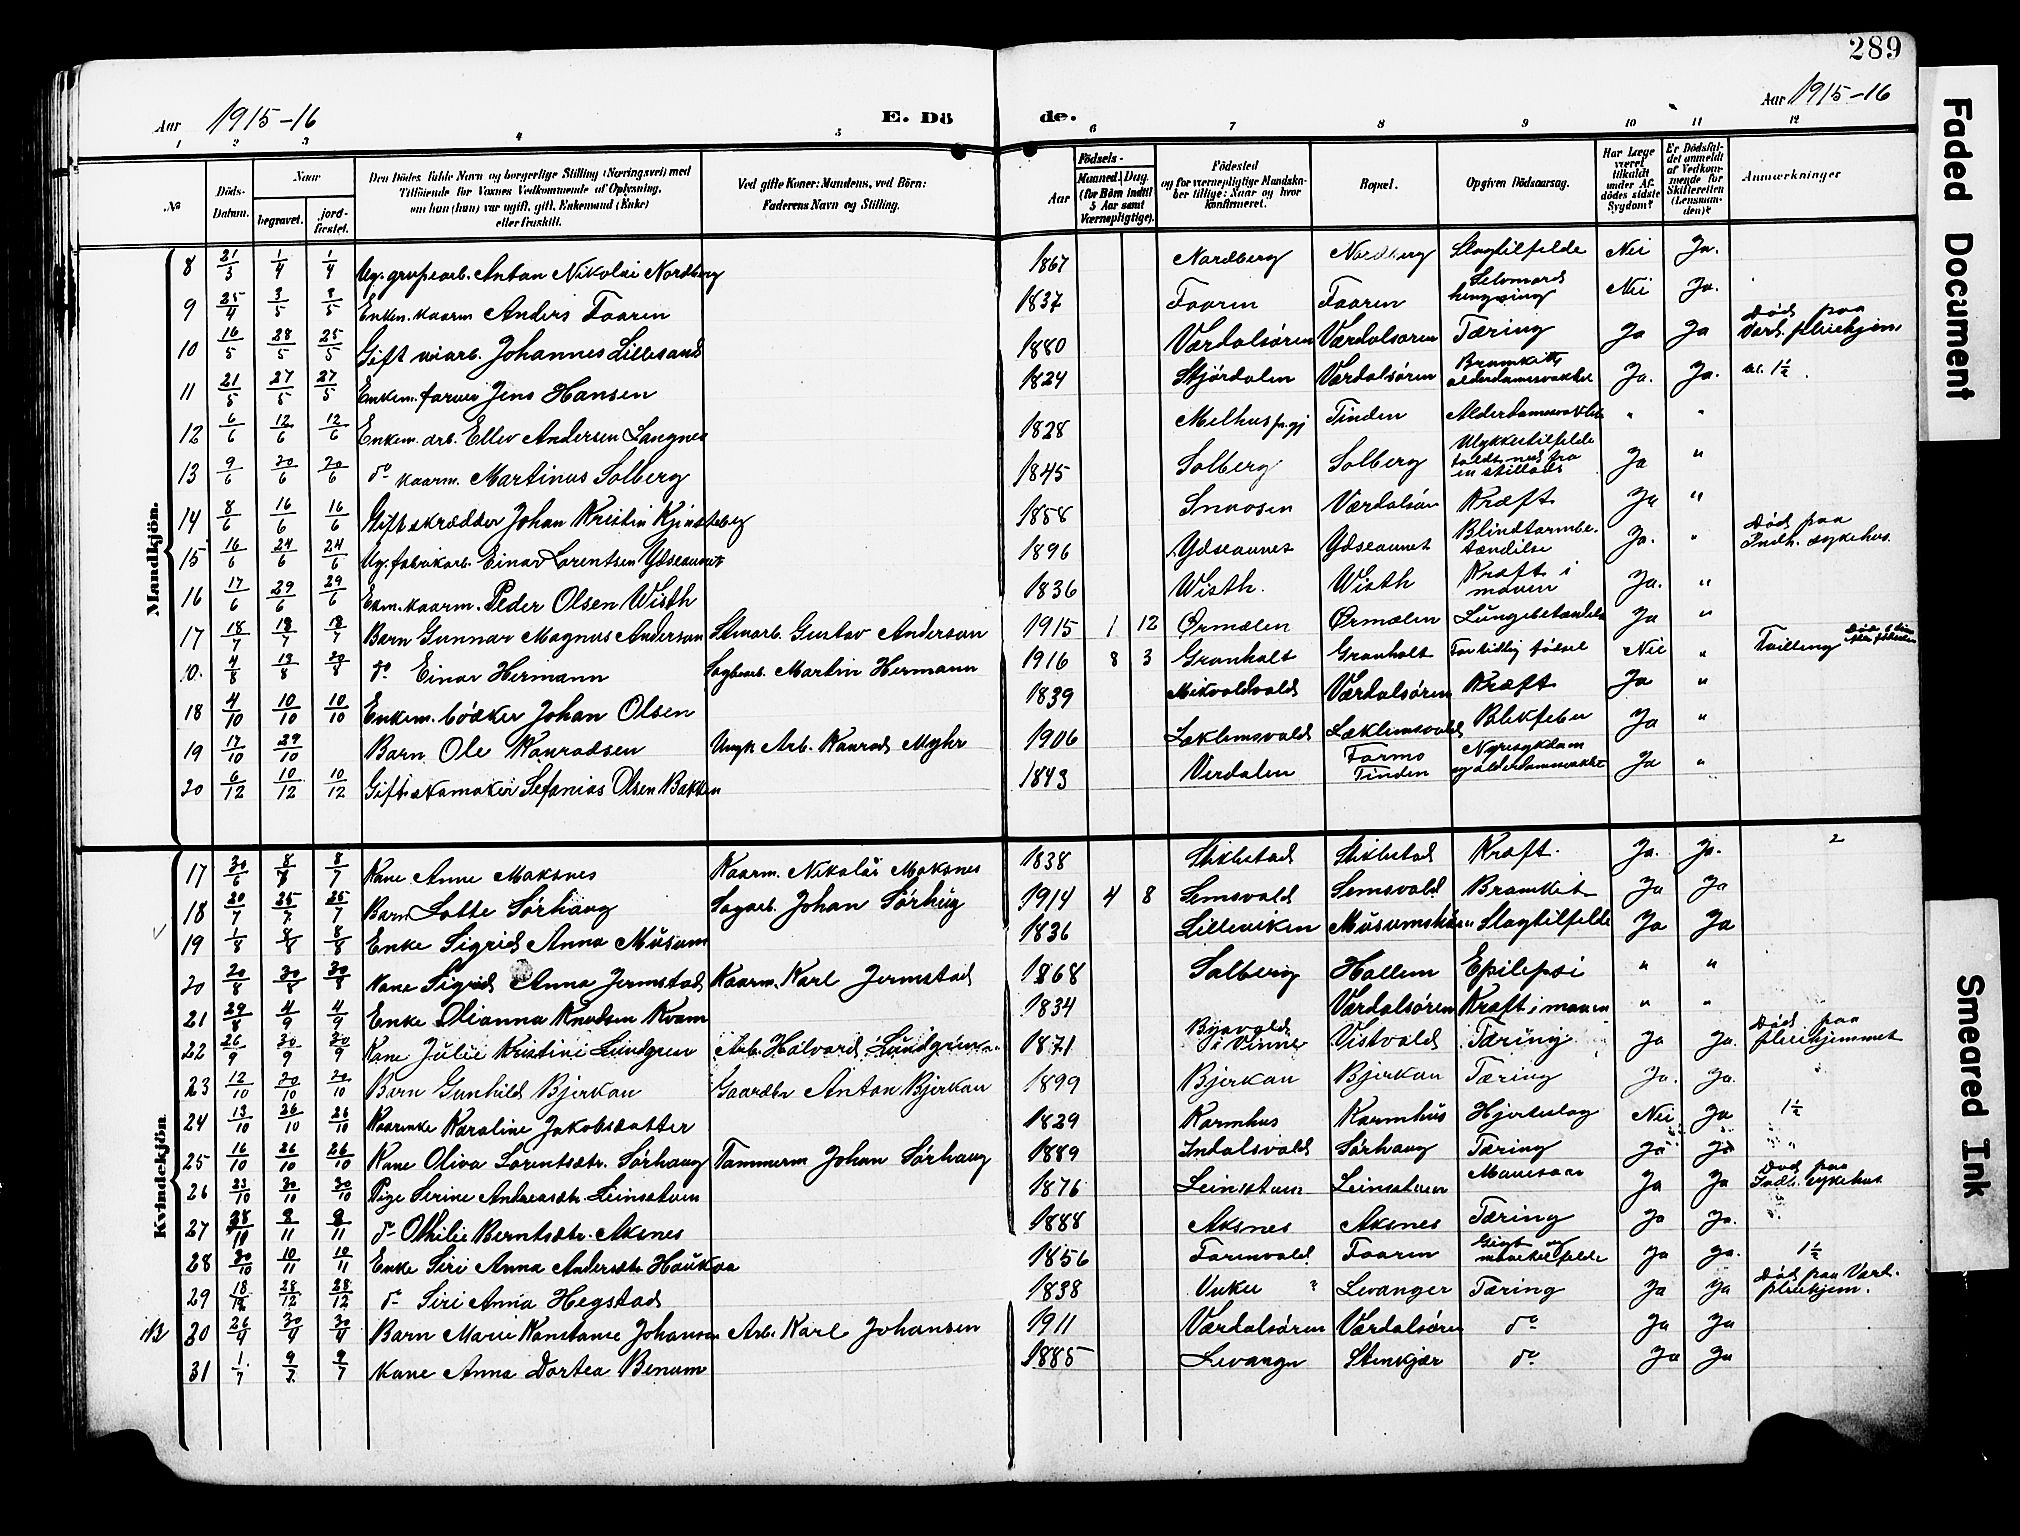 289
Aar 1915-16 E. Döde. Aar 1915-16
1 2 3 4 5 6 7 8 9 10 11 12
No
Döds-Datum.
Naar
begravet.
jord-fæstet.
Den Dödes fulde Navn og borgerlige Stilling (Næringsvei) med
Tilföiende for Voxnes Vedkommende af Oplysning,
om han (hun) var ugift, gift, Enkemand (Enke)
eller fraskilt.
Ved gifte Koner: Mandens, ved Börn:
Faderens Navn og Stilling.
Födsels-
Aar
Maaned. Dag.
(for Börn indtil
5 Aar samt
Værnepligtige).
Födested
og for værnepligtige Mandska-
ber tillige: Naar og hvor
konfirmeret.
Bopæl.
Opgiven Dödsaarsag.
Har Læge
været
tilkaldt
under Af-
dödes sidste
Sygdom?
Er Dödsfal-
det anmeldt
af Vedkom-
mende for
Skifteretten
(Lensman-
den)?
Anmærkninger
Mandkjön.
8 31/3 1/4 1/4 Ug. grubearb. Anton Nikolai Nordberg 1867 Nordberg Nordberg Slagtilfelde Nei Ja.
9 25/4 3/5 3/5 Enkem. kaarm Anders Faaren 1837 Faaren Faaren Selvmord hengning Nei Ja.
10 16/5 28/5 25/5 Gift Johannes Lillesand 1880 Værdalsören Værdalsören Tæring Ja Ja Död paa Værd. pleiehjem
11 21/5 27/5 27/5 Enkem. farver Jens Hansen 1824 Stjördalen Værdalsören Bronkitt alderdomssvakhet Ja. Ja. 1½
12 6/6 12/6 12/6 Enkem. arb. Ellev Andersen Langnes 1828 Melhus prgj Tinden Alderdomssvakhet " "
13 9/6 20/6 20/6 do kaarm. Martinus Solberg 1845 Solberg Solberg Ulykkestilfelde faldt ned fra en stillads Ja "
14 8/6 16/6 16/6 Gift skrædder Johan Kristin 1858 Snaasen Værdalsören Kræft Ja "
15 16/6 24/6 24/6 Ug. fabrikarb. Einar Lorentsen Ydseaunet 1896 Ydseaunet Ydseaunet Blindtarmbetændelse Ja. " Död paa Indh. sykehus
16 17/6 29/6 29/6 Ekm. kaarm. Peder Olsen Wisth 1836 Wisth. Wisth Kræft i maven Ja. "
17 18/7 18/7 Barn Gunnar Magnus Anderson Stenarb. Gustav Anderson 1915 1 12 Ørmelen Ørmelen Lungebetændelse Ja "
0. 4/8 13/8 20/8 do Einar Hermann Sagbearb. Martin Hermann 1916 8 3 Granholt Granholt For tidlig födsel Nei " Tvilling
18 4/10 10/10 10/10 Enkem. bödker Johan Olsen 1839 Mikvoldvald Værdalsören Kræft Ja "
19 17/10 29/10 Barn Ole Konradsen Arb. Konrad Myhr 1906 Leklemsvald Leklemsvald Ja "
20 6/12 10/12 10/12 Gift skomaker Sefanias Olsen Bakken 1843 Verdalen Tinden Nyresykdom og alderdomssvakhet Ja "
Kvindekjön
17 30/6 8/8 8/7 Kone Anne Moksnes Kaarm. Nikolai Moksnes 1838 Stiklestad Stiklestad Kræft. Ja. Ja. 2
18 20/7 25/7 25/7 Barn Lotte Sörhaug Sagarb. Johan Sörhaug 1914 4 8 Semsvald Semsvald Bronkit Ja Ja
19 1/8 8/8 8/8 Enke Sigrid Anna Müsum 1836 Lilleviken Slagtilfelde Ja Ja
20 20/8 30/8 30/8 Kone Sigrid Anna Jermstad Kaarm. Karl Jermstad 1868 Salberg Hallem Epilepsi " "
21 29/8 4/9 4/9 Enke Olianna Knudsen Kvam 1834 Værdalsören Kræft i maven " "
22 26/9 30/9 30/9 Kone Julie Kristine Lundgren Arb. Halvard Lundgren 1871 i Vinne Vistvald Tæring Ja Ja. Död paa pleiehjemmet
23 12/10 20/10 20/10 Barn Gunhild Bjerkan Gaardbr Anton Bjerkan 1899 Bjerkan Bjerkan Tæring Ja. Ja.
24 13/10 26/10 26/10 Kaarenke Karoline Jakobsdatter 1829 Karmhus Karmhus Hjerteslag Nei Ja 1½
25 16/10 26/10 26/10 Kone Oliva Lorentsdtr. Sörhaug Tömmerm Johan Sörhaug 1889 Indalsvald Sörhaug Tæring Ja Ja
26 23/10 30/10 30/10 Pige Serine Andreasdtr. Leinsstuen 1876 Leinsstuen Leinsstuen Mavesaar Ja Ja Död paa Indh. sykehus
27 28/10 9/11 9/11 do Othilie Berntsdtr. Aksnes 1888 Aksnes Aksnes Tæring Ja Ja.
28 30/10 10/11 10/11 Enke Siri Anna Andersdtr. Haukaa 1856 Faarenvald Faaren Gigt og Ja Ja. 1½
29 18/12 28/12 28/12 do Siri Anna Hegstad 1838 Vuku Levanger Tæring Ja Ja Död paa Værd. pleiehjem.
NB 30 26/4 30/4 30/4 Barn Marie Konstanse Johansen Arb. Karl Johansen 1911 Værdalsören Værdalsören do Ja Ja
31 1/7 9/7 9/7 Kone Anna Dortea Benum 1885 Levanger Stenkjær do Ja Ja
Faded Document
Smeared Ink